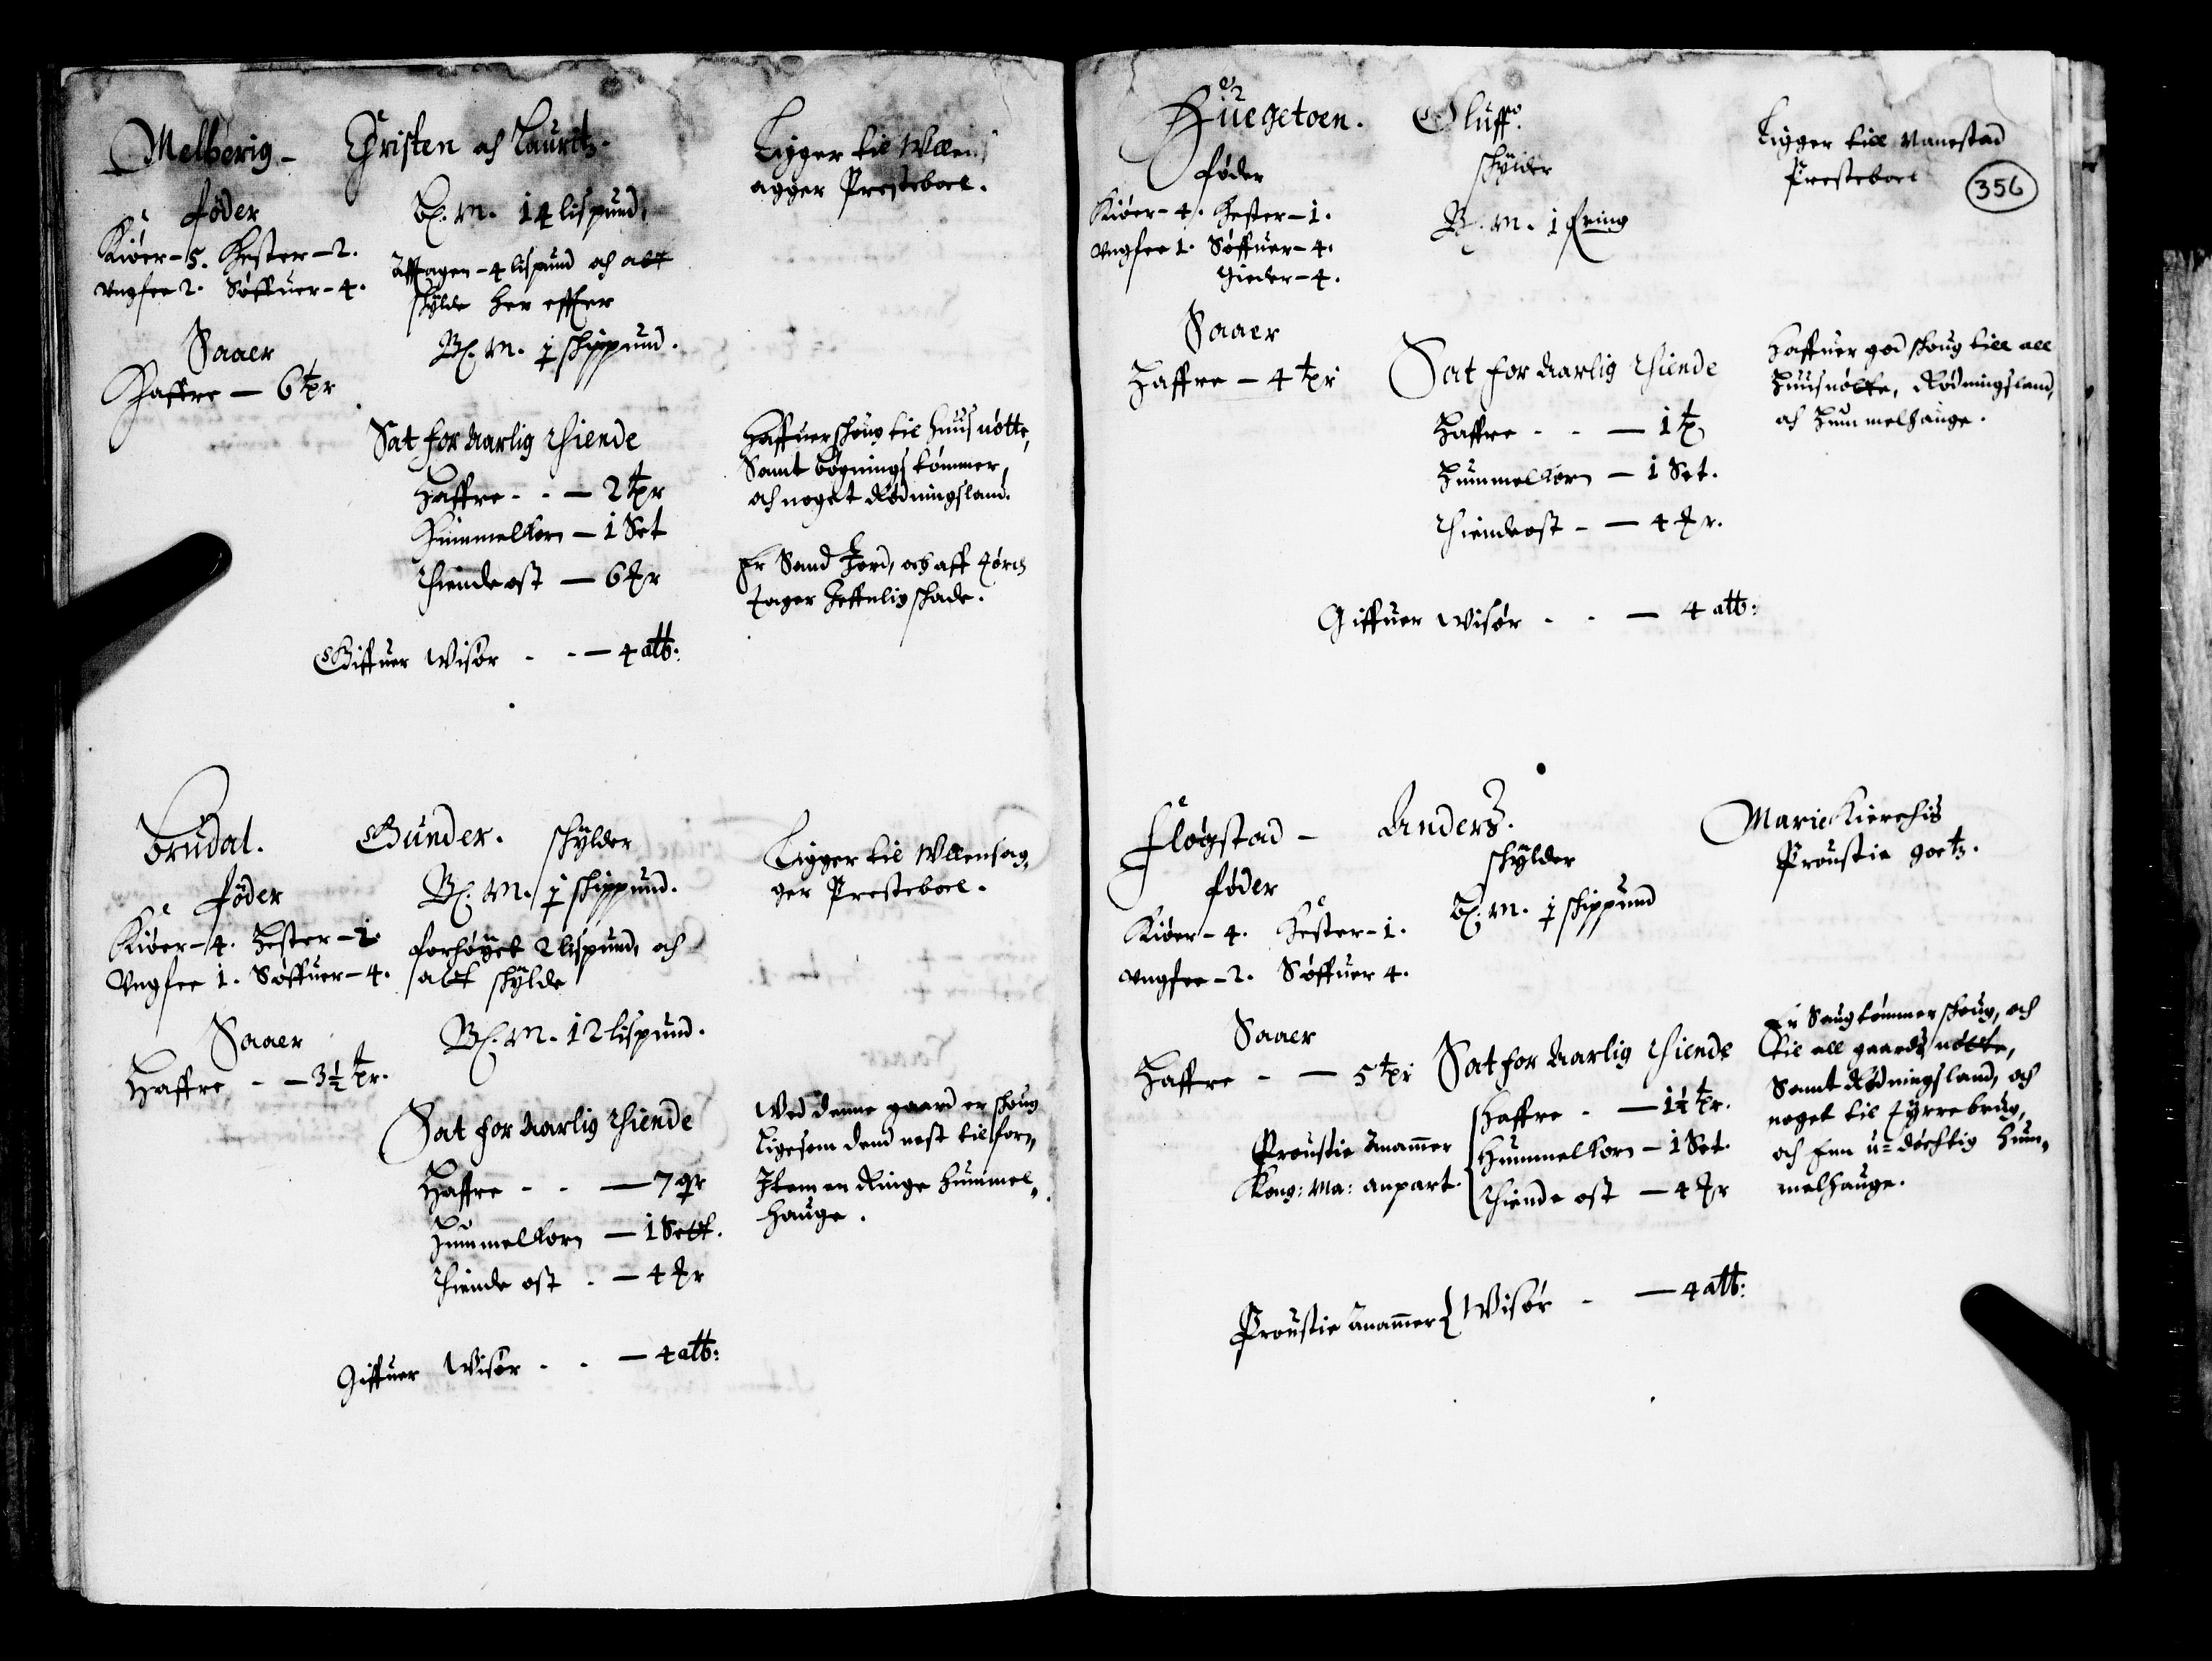 Melberig – Christen och Lauritz.
Ligger til Ullens
agger Presteboel.
føder
Kiøer – 5. Hester – 2.
ungfee 2. Søffuer – 4.
Bx. M. 14 lispund,
Afftagen – 4 lispund och alt
skylde her effter
Bx. M. ½ skippund.
Saaer
Haffre — 6 tr
Sat for Aarlig thiende
Haffre - - — 2 tr
Hummelkorn — 1 Set
Thiende ost — 6 mr
Haffuer skoug til huus nøtte,
Samt bøgnings tømmer,
och noget Rødningsland.
Er Sand Jord, och aff tørch
tager heftelig skade.
Giffuer Wisør - - — 4 alb:
Brudal. Gunder. skylder
Ligger til Ullensag,
ger Presteboel.
føder
Kiøer – 4. Hester – 1.
Ungfee 1. Søffuer – 4.
Bx. M. ½ skippund.
forhøyet 2 lispund, och
alt skylde
Bx. M. 12 lispund.
Saaer
Haffre - — 3½ tr.
Sat for Aarlig thiende
Haffre - - — 7 qr
Hummelkorn — 1 Sett.
Thiende ost - — 4 mr
Wed denne gaard er skoug
ligesom dend nest tilforn,
Item en Ringe hummel,
hauge.
Giffuer Wisør - - — 4 alb:
Huegetoen. Oluff.
Ligger till Nanestad
Presteboel
356
føder
Kiøer – 4. Hester – 1.
ungfee 1. Søffuer – 4.
Gieder – 4.
skylder
Bx. M. 1 fring
Saaer
Haffre — 4 tr
Sat for Aarlig thiende
Haffre - - — 1 t
Hummelkorn — 1 Set.
Thiende ost - — 4 mr.
Haffuer god skoug till all
huusnøtte, Rødningsland,
och hummelhauge.
Giffuer Wisør - - — 4 alb:
Fløgstad – Anders.
Marie Kierchis
Proustie goetz.
føder
Kiøer – 4. Hester – 1.
ungfee – 2. Søffuer 4.
skylder
Bx. M. ½ skippund
Saaer
Haffre - — 5 tr
Sat for Aarlig thiende
Proustie Anammer
Kong: Ma: anpart.
Haffre - — 1½ tr.
Hummelkorn — 1 Set.
Thiende ost — 4 mr
Er Saugtømmer skoug, och
til all gaards nøtte,
Samt Rødningsland, och
noget til tyrrebrug,
och Enn u=døchtig hum,
melhauge.
Proustie Anammer Wisør - — 4 alb: